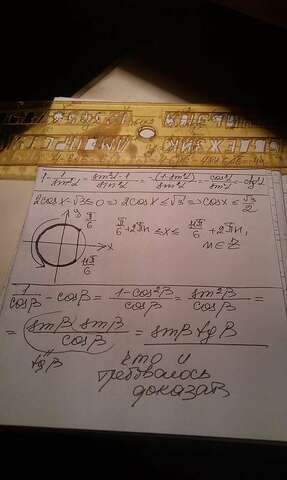 1 - 1/sin²α = (sin²α - 1)/sin²α = -(1 - sin²α)/sin²α = -cos²α/sin²α = -ctg²α
2cosx - √3 ≤ 0 ⇒ 2cosx ≤ √3 ⇒ cosx ≤ √3/2
y
π/6
x
11π/6
π/6 + 2πn ≤ x ≤ 11π/6 + 2πn,
n ∈ Z
1/cosβ - cosβ = (1 - cos²β)/cosβ = sin²β/cosβ =
= (sinβ sinβ)/cosβ = sinβ tgβ
tgβ
что и
требовалось
доказать